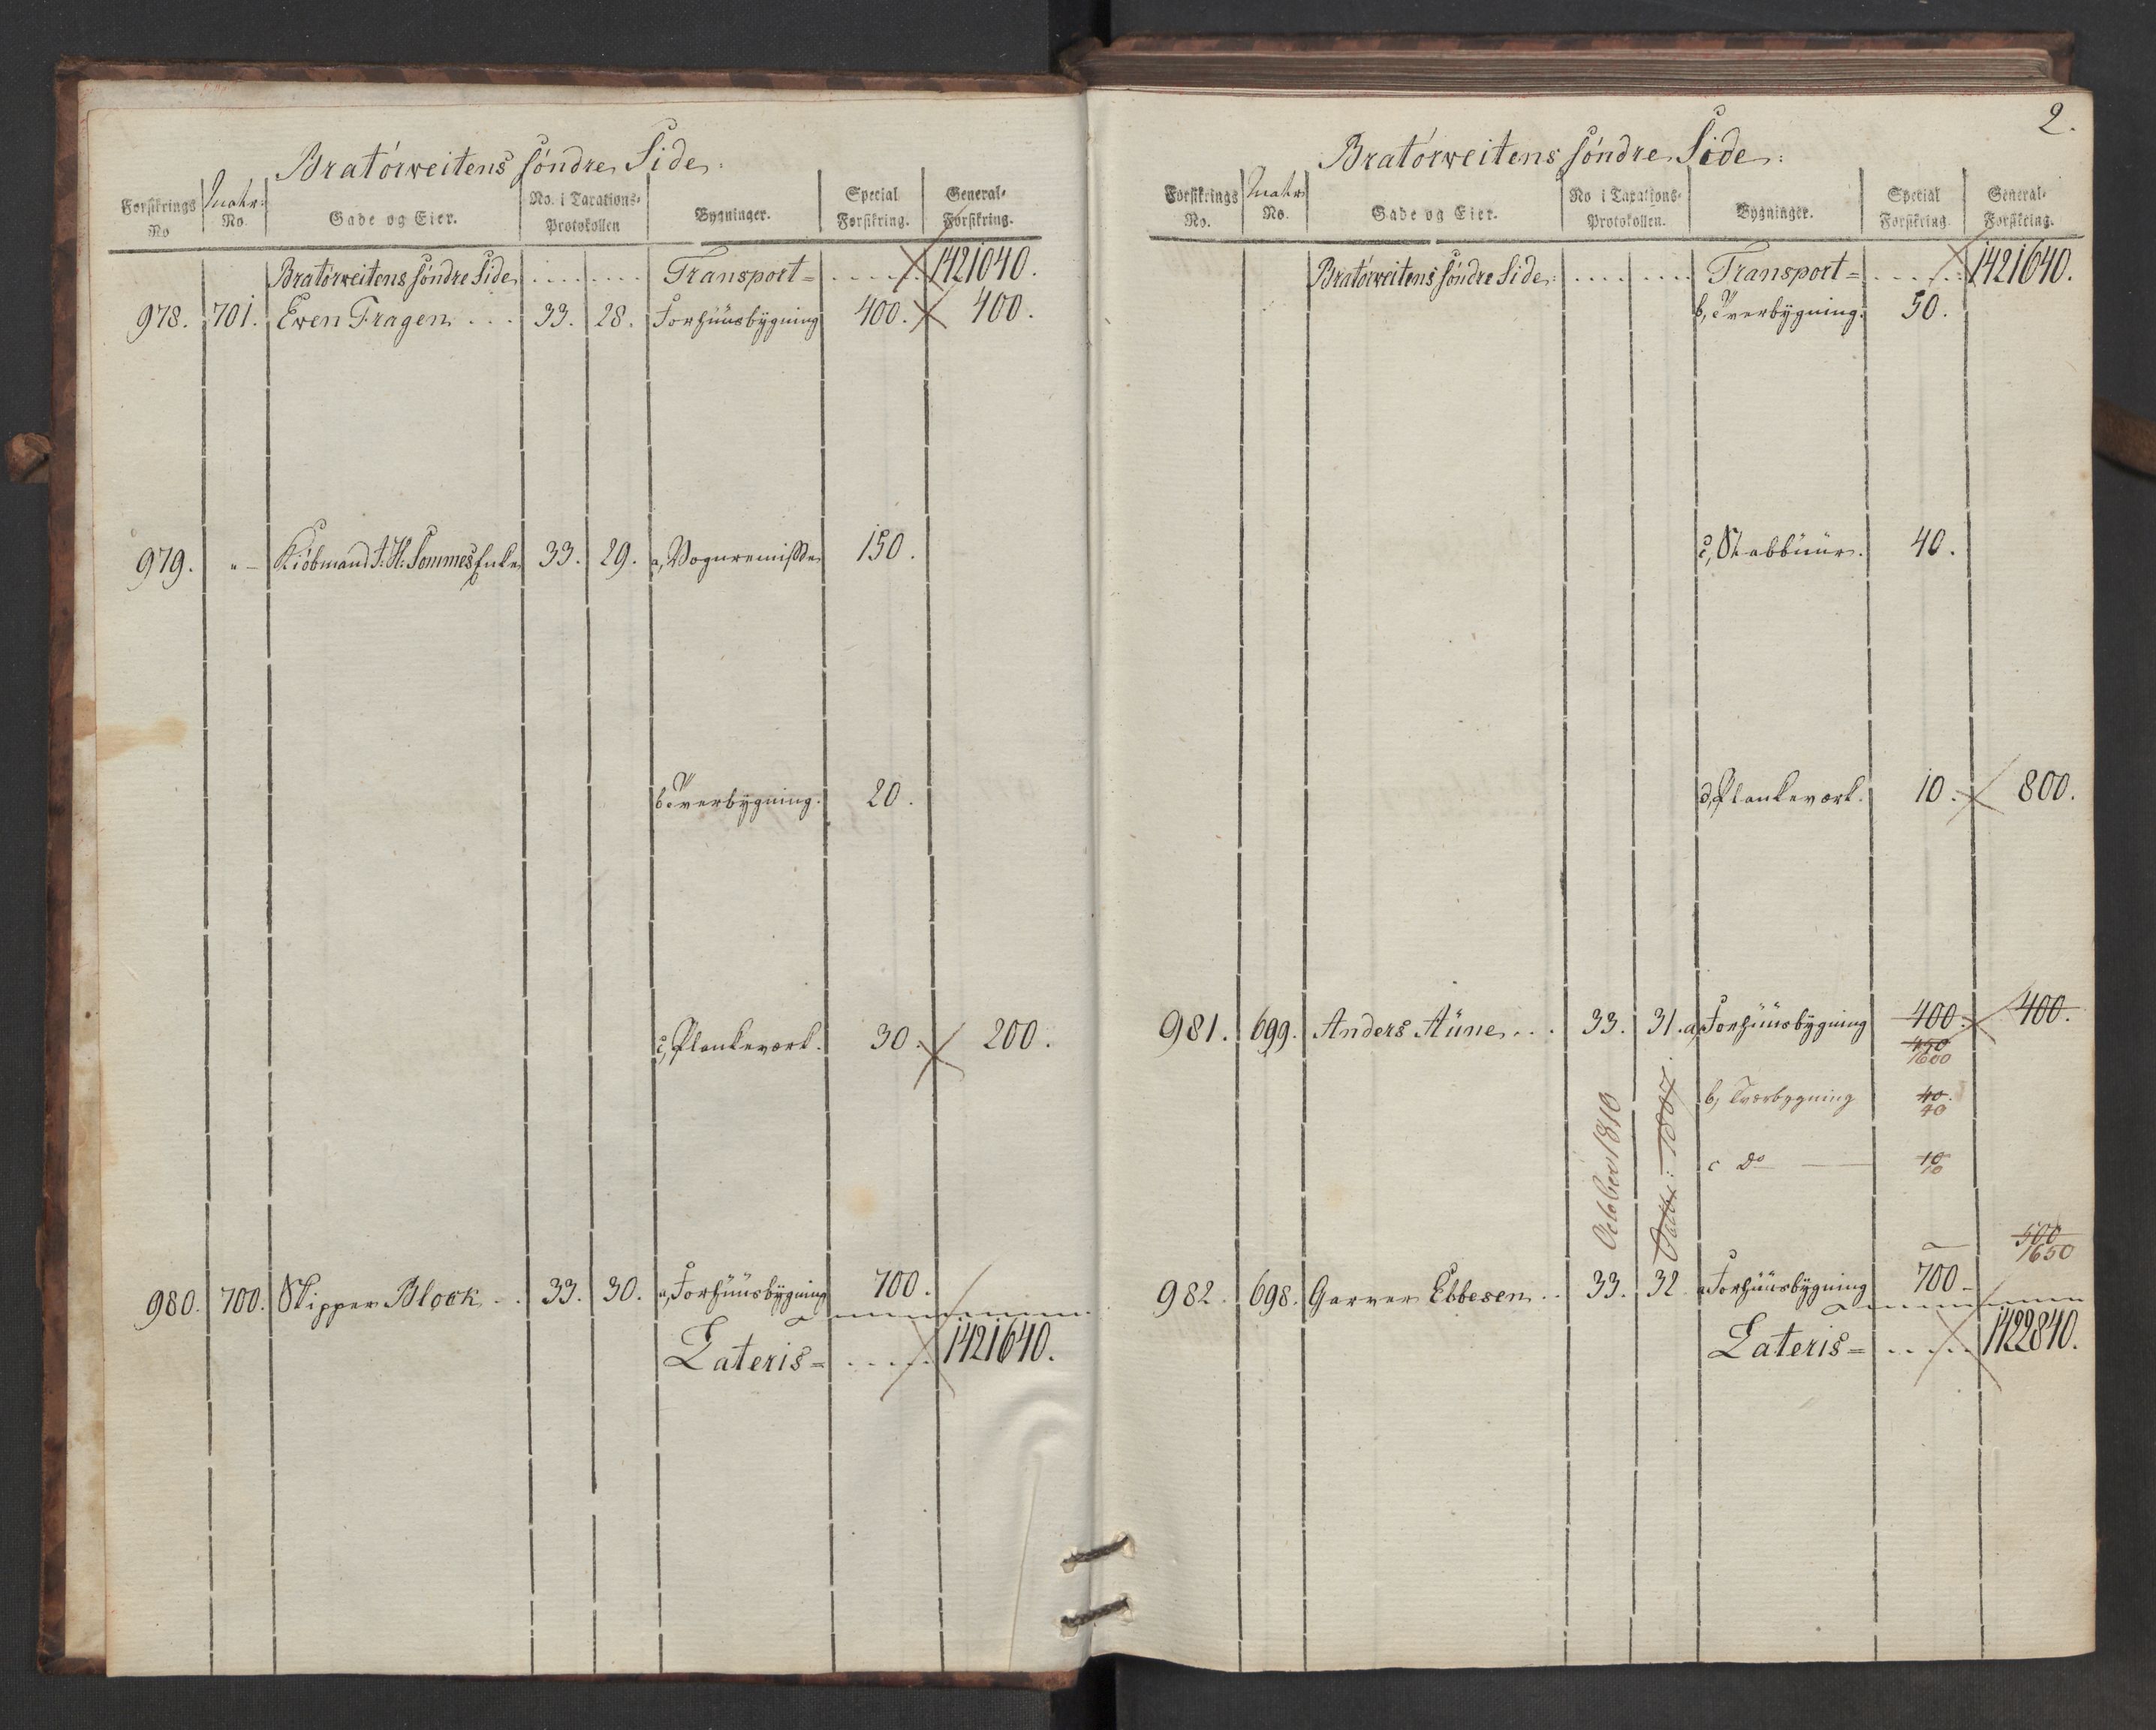 Bratörveitens söndre Side.
Forsikrings No Matr: No. Gade og Eier. No. i Taxations-Protokollen Bygninger. Special Forsikring. General-Forsikring.
Bratörveitens söndre Side ........ Transport= ..... 1421040.
978. 701. Even Tragen ... 33. 28. Forhüüsbygning 400. 400.
979. " Kiöbmand J: H: Sommes Enke 33. 29. a, Vognremisse 150.
b, Tverbygning. 20.
c, Plankeværk. 30. 200.
980. 700. Skipper Block .. 33. 30. a, Forhüüsbygning 700.
Lateris= ..... 1421640.
2.
Bratörveitens söndre Side:
Forsikrings No. Matr: No. Gade og Eier. No i Taxations-Protokollen. Bygninger. Special Forsikring General-Forsikring.
Bratörveitens söndre Side: ........ Transport= ..... 1421640.
b, Tverbygning. 50.
c, Stabbüür. 40.
d, Plankeværk. 10. 800.
981. 699. Anders Aüne ... 33. 31. a, Forhüüsbygning 400. 400.
450
1600
b, Tværbygning 40.
40
c Do 10
10
October 1810
Octbr: 1807.
500
1650
982. 698. Garver Ebbesen .. 33. 32. a, Forhüüsbygning 700
Lateris= ..... 1422840.